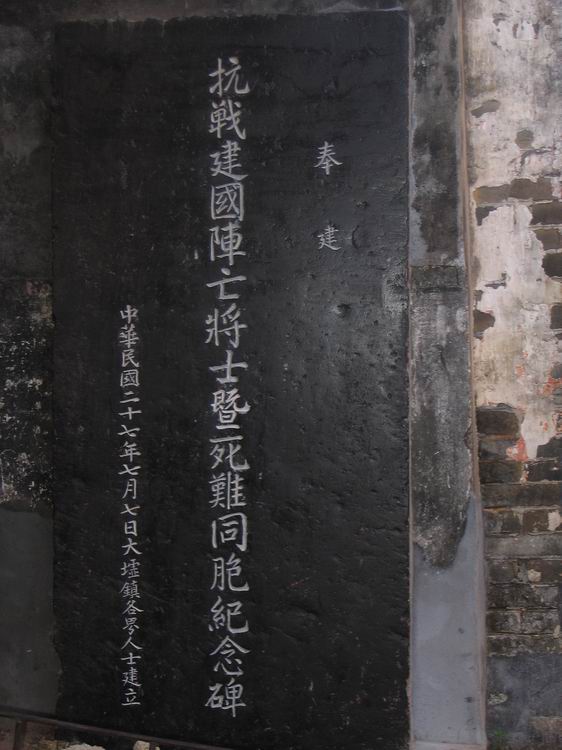 奉建
抗戰建國陣亡將士暨死難同胞紀念碑
中華民國二十七年七月七日大墟鎮各界人士建立